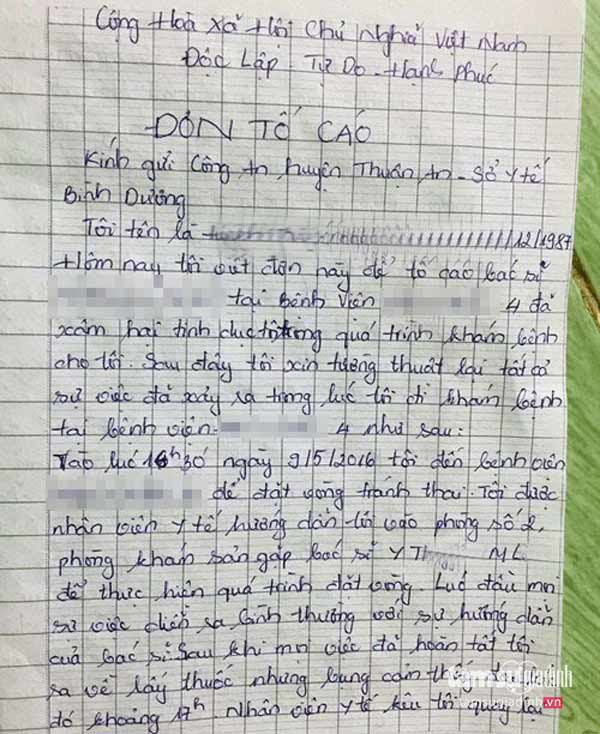 Cộng Hoà Xã Hội Chủ Nghĩa Việt Nam
Độc Lập Tự Do - Hạnh phúc
ĐƠN TỐ CÁO
Kính gửi Công An huyện Thuận An - Sở Y tế
Bình Dương
Tôi tên là /12/1987
Hôm nay tôi viết đơn này để tố cáo bác sĩ
tại Bệnh Viện 4 đã
xâm hại tình dục tôi trong quá trình khám bệnh
cho tôi. Sau đây tôi xin tường thuật lại tất cả
sự việc đã xảy ra trong lúc tôi đi khám bệnh
tại bệnh viện 4 như sau:
Vào lúc 16h30 ngày 9/5/2016 tôi đến bệnh viện
để đặt vòng tránh thai. Tôi được
nhân viên y tế hướng dẫn tôi vào phòng số 2,
phòng khám sản gặp bác sĩ Y ML
để thực hiện quá trình đặt vòng. Lúc đầu mọi
sự việc diễn ra bình thường với sự hướng dẫn
của bác sĩ. Sau khi mọi việc đã hoàn tất tôi
ra về lấy thuốc nhưng bụng cảm thấy
đó khoảng 17h. Nhân viên y tế kêu tôi quay lại